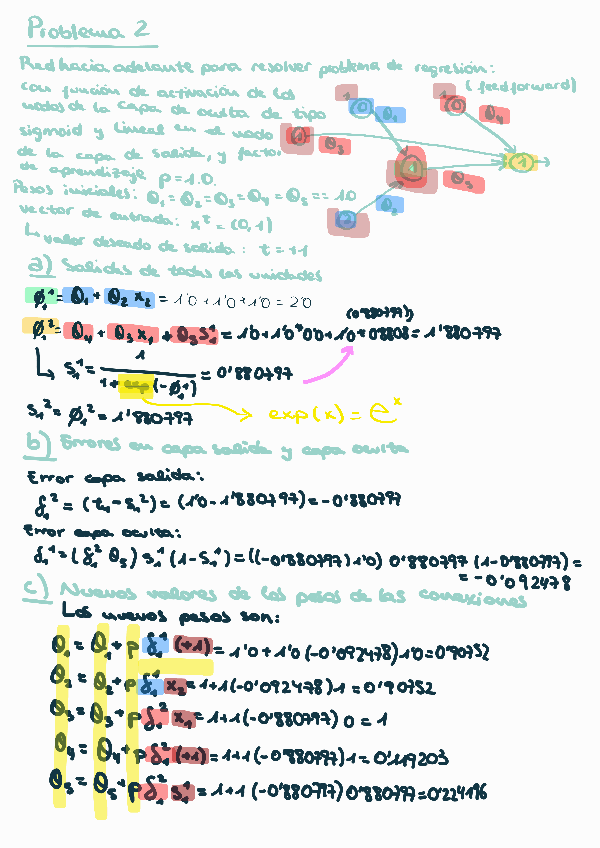 Problema 2
Red hacia adelante para resolver problema de regresión:
(feedforward)
con función de activación de los
nodos de la capa de oculta de tipo
sigmoid y lineal en el nodo
de la capa de salida, y factor
de aprendizaje ρ=1.0.
Pesos iniciales: θ₁=θ₂=θ₃=θ₄=θ₅==1.0
vector de entrada: x²=(0,1)
↳ valor deseado de salida: t=+1
1 θ₁ 1 θ₄
1 θ₃
1 θ₅ 1
2 θ₂
a) Salidas de todas las unidades
ø₁¹= θ₁ + θ₂ x₂ = 1'0+1'0*1'0=2'0
(0'880797)
ø₁²= θ₄ + θ₃ x₁ + θ₃ S₁¹ = 1'0+1'0*0'0+1'0*0'8808=1'880797
↳ S₁¹ = 1 / (1+exp(-ø₁¹)) = 0'880797
S₁²=ø₁²=1'880797
exp(x)=eˣ
b) Errores en capa salida y capa oculta
Error capa salida:
δ₁²=(t₁-s₁²)=(1'0-1'880797)=-0'880797
Error capa oculta:
δ₁¹=(δ₁² θ₅) s₁¹ (1-S₁¹)=((-0'880797)1'0) 0'880797 (1-0'880797)=
=-0'092478
c) Nuevos valores de los pesos de las conexiones
Los nuevos pesos son:
θ₁ = θ₁ + ρ δ₁¹ (+1) = 1'0+1'0(-0'092478)1'0=0'90752
θ₂ = θ₂ + ρ δ₁¹ x₂ = 1+1(-0'092478)1=0'90752
θ₃ = θ₃ + ρ δ₁² x₁ = 1+1(-0'880797)0=1
θ₄ = θ₄ + ρ δ₁² (+1) = 1+1(-0'880797)1=0'119203
θ₅ = θ₅ + ρ δ₁² s₁¹ = 1+1(-0'880797)0'880797=0'224196